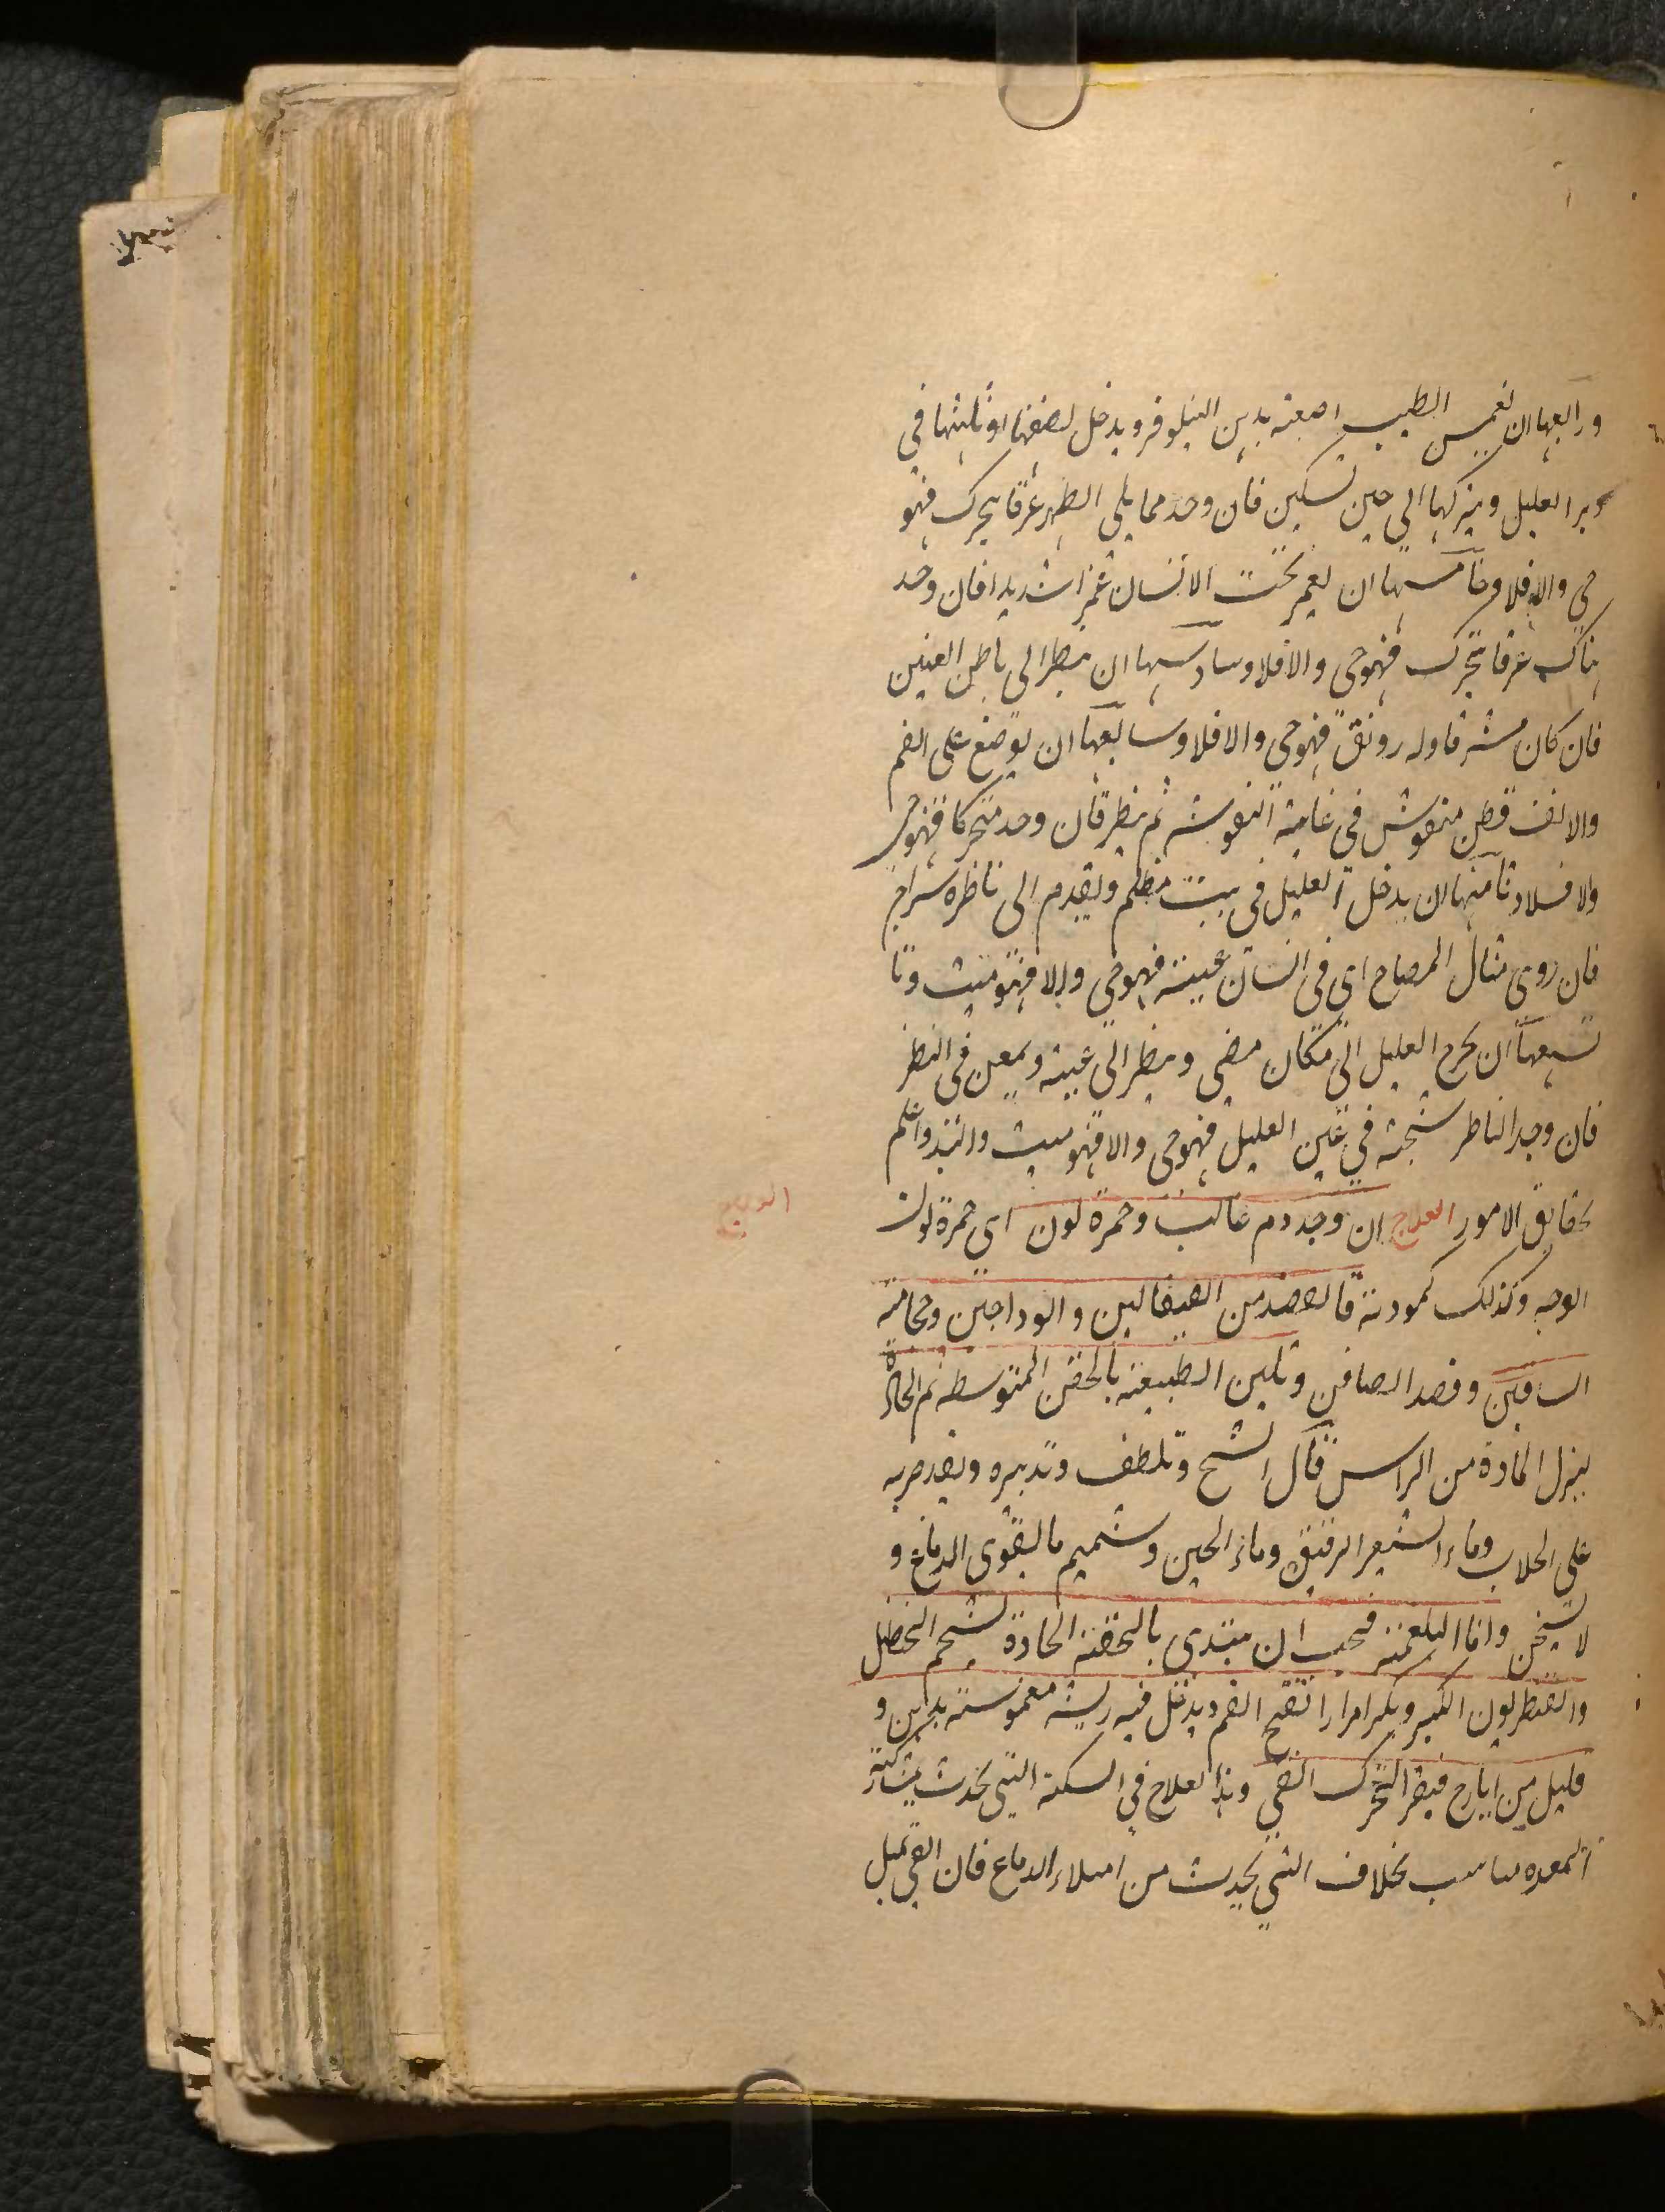 ورابعها ان يغمس الطبيب اصبعه بدهن النيلوفر ويدخل نصفها او ثلثها في
دبر العليل ويتركها الى حين تسكين فان وجد مما يلي الظهر عرقا يتحرك فهو
حي والا فلا وخامسها ان يغمز تحت الانسان غمزا شديدا فان وجد
هناك عرقا يتحرك فهو حي والا فلا وسادسها ان ينظر الى باطن العينين
فان كان مشرقا وله رونق فهو حي والا فلا وسابعها ان يوضع على الفم
والانف قطن منفوش في غاية النفوشه ثم ينظر فان وجد متحركا فهو حي
والا فلا وثامنها ان يدخل العليل في بيت مظلم ويقدم الى ناظره سراج
فان روي مثال المصباح اي في انسان عينه فهو حي والا فهو ميت وتا
تسعها ان يخرج العليل الى مكان مضي وينظر الى عينه ويمعن في النظر
فان وجد الناظر شبحه في عين العليل فهو حي والا فهو ميت والله اعلم
بحقايق الامور العلاج ان وجد دم غالب وحمرة لون اي حمرة لون
العلاج
الوجه وكذلك كمودته فالفصد من القيفالين والوداجين وحجامة
الساقين وفصد الصافن وتليين الطبيعة بالحقن المتوسطه ثم الحادة
لينزل المادة من الراس قال الشيخ وتلطف وتدبيره ويقتصر به
على الجلاب وماء الشعير الرقيق وماء الجبن وشميم ما يقوى الدماغ و
لا يسخن واما البلغمية فيجب ان يبتدى بالحقنة الحادة بشحم الحنظل
والقنطريون الكبير ويكرر مرارا ويفتح الفم ويدخل فيه ريشة مغموسة بدهن و
قليل من ايارج فيقرا ليتحرك القي وهذا العلاج في السكتة التي تحدث بمشاركة
المعده مناسب بخلاف التي تحدث من امتلاء الدماغ فان القي يميل